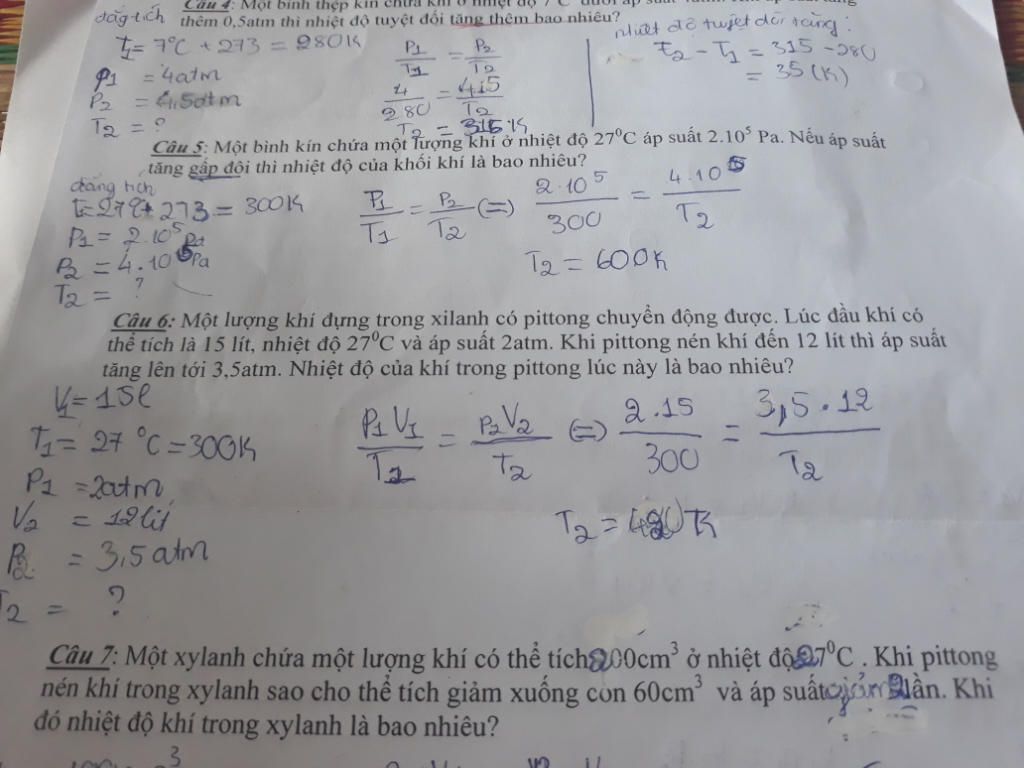 Câu 4: Một bình thép kín chứa khí ở nhiệt độ 7°C dưới áp suất
thêm 0,5atm thì nhiệt độ tuyệt đối tăng thêm bao nhiêu?
đẳng tích
T1 = 7°C + 273 = 280K
P1 = 4atm
P2 = 4,5atm
T2 = ?
P1/T1 = P2/T2
4/280 = 4,5/T2
T2 = 315K
nhiệt độ tuyệt đối tăng:
t2 - T1 = 315 - 280
= 35 (K)
Câu 5: Một bình kín chứa một lượng khí ở nhiệt độ 27⁰C áp suất 2.10⁵ Pa. Nếu áp suất
tăng gấp đôi thì nhiệt độ của khối khí là bao nhiêu?
đẳng tích
t=27+273 = 300K
P1 = 2.10⁵ Pa
P2 = 4.10⁵ Pa
T2 = ?
P1/T1 = P2/T2 (=) 2.10⁵/300 = 4.10⁵/T2
T2 = 600K
Câu 6: Một lượng khí đựng trong xilanh có pittong chuyển động được. Lúc đầu khí có
thể tích là 15 lít, nhiệt độ 27⁰C và áp suất 2atm. Khi pittong nén khí đến 12 lít thì áp suất
tăng lên tới 3,5atm. Nhiệt độ của khí trong pittong lúc này là bao nhiêu?
V1 = 15l
T1 = 27 °C = 300K
P1 = 2atm
V2 = 12 lít
P2 = 3,5 atm
T2 = ?
P1V1/T1 = P2V2/T2 (=) 2.15/300 = 3,5.12/T2
T2 = 420 K
Câu 7: Một xylanh chứa một lượng khí có thể tích 200cm³ ở nhiệt độ 27⁰C . Khi pittong
nén khí trong xylanh sao cho thể tích giảm xuống còn 60cm³ và áp suất giảm 2 lần. Khi
đó nhiệt độ khí trong xylanh là bao nhiêu?